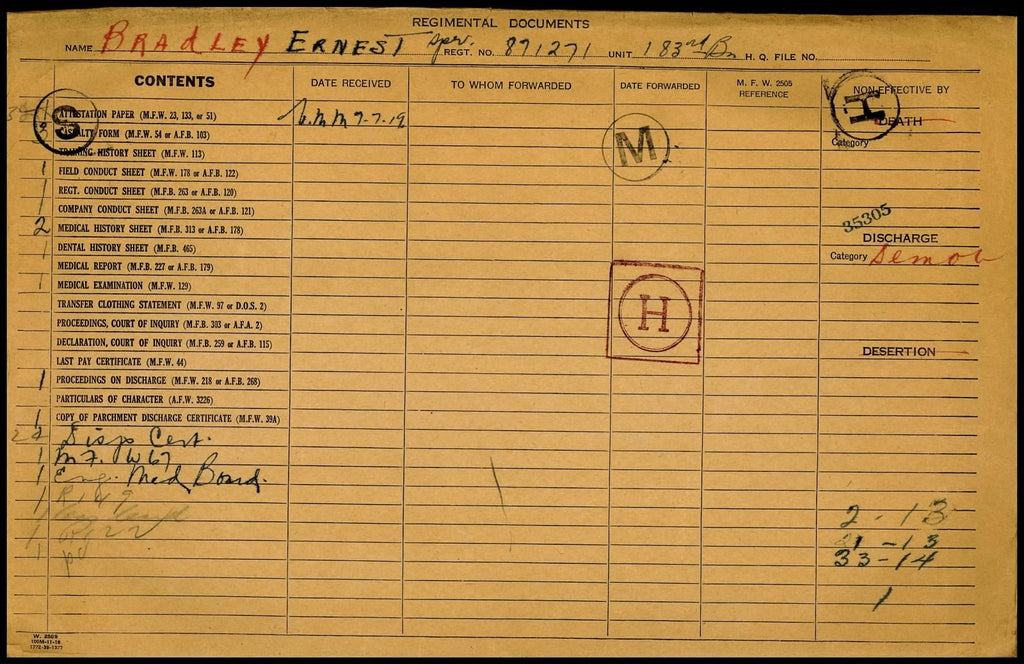 REGIMENTAL DOCUMENTS
NAME BRADLEY ERNEST Spr. REGT. NO. 871271 UNIT 183rd Bn H. Q. FILE NO.
CONTENTS DATE RECEIVED TO WHOM FORWARDED DATE FORWARDED M. F. W. 2505 REFERENCE NON-EFFECTIVE BY
ATTESTATION PAPER (M.F.W. 23, 133, or 51) 7-7-19 H DEATH
S CASUALTY FORM (M.F.W. 54 or A.F.B. 103) M Category
TRAINING HISTORY SHEET (M.F.W. 113)
1 FIELD CONDUCT SHEET (M.F.W. 178 or A.F.B. 122)
1 REGT. CONDUCT SHEET (M.F.B. 263 or A.F.B. 120)
COMPANY CONDUCT SHEET (M.F.B. 263A or A.F.B. 121)
2 MEDICAL HISTORY SHEET (M.F.B. 313 or A.F.B. 178) 35305
1 DENTAL HISTORY SHEET (M.F.B. 465) DISCHARGE
MEDICAL REPORT (M.F.B. 227 or A.F.B. 179) Category Demob
1 MEDICAL EXAMINATION (M.F.W. 129)
TRANSFER CLOTHING STATEMENT (M.F.W. 97 or D.O.S. 2)
PROCEEDINGS, COURT OF INQUIRY (M.F.B. 303 or A.F.A. 2) H
DECLARATION, COURT OF INQUIRY (M.F.B. 259 or A.F.B. 115)
LAST PAY CERTIFICATE (M.F.W. 44) DESERTION
1 PROCEEDINGS ON DISCHARGE (M.F.W. 218 or A.F.B. 268)
PARTICULARS OF CHARACTER (A.F.W. 3226)
1 COPY OF PARCHMENT DISCHARGE CERTIFICATE (M.F.W. 39A)
Disp Cert.
1 M.F.W 67
1 Eng. Med Board.
1 R 149
2-13
1 22
1 21-13
33-14
1
W. 2509
100M-11-18
1772-39-1377